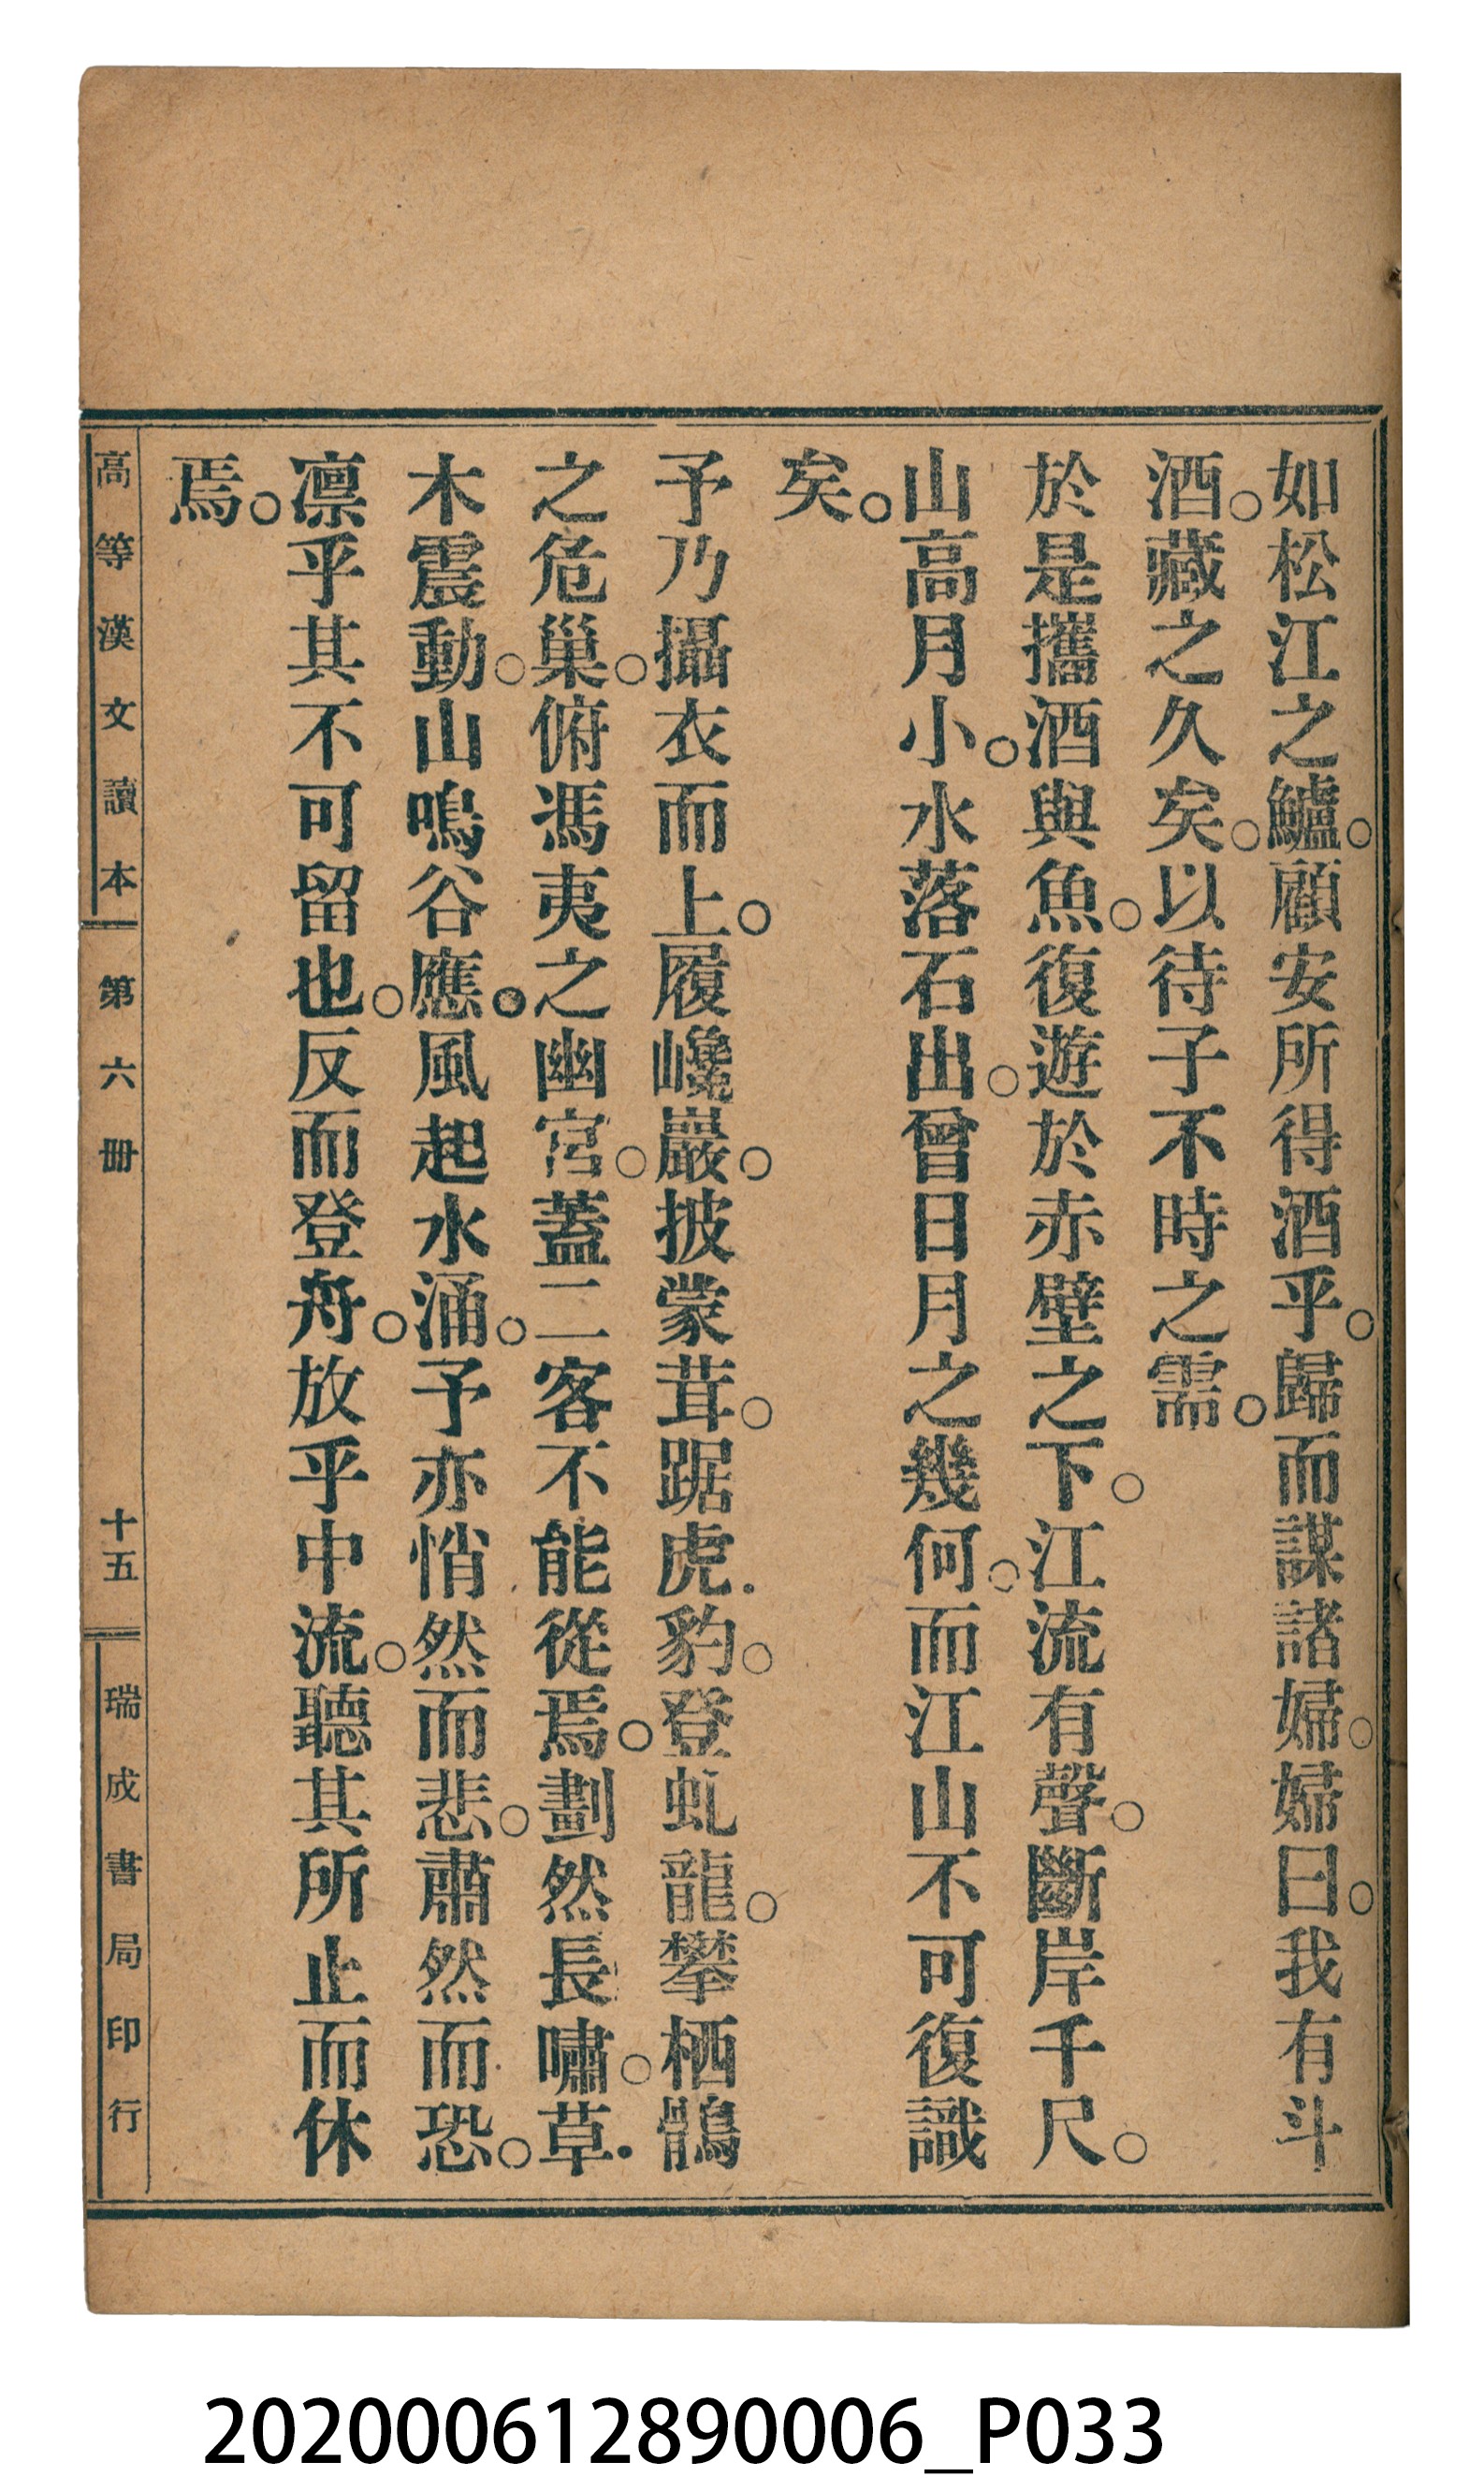 如松江之鱸。顧安所得酒乎。歸而謀諸婦。婦曰。我有斗
酒。藏之久矣。以待子不時之需。
於是攜酒與魚。復遊於赤壁之下。江流有聲。斷岸千尺。
山高月小。水落石出。曾日月之幾何。而江山不可復識
矣。
予乃攝衣而上。履巉巖。披蒙茸。踞虎豹。登虬龍。攀栖鶻
之危巢。俯馮夷之幽宮。蓋二客不能從焉。劃然長嘯。草
木震動。山鳴谷應。風起水涌。予亦悄然而悲。肅然而恐。
凛乎其不可留也。反而登舟。放乎中流。聽其所止而休
焉。
高等漢文讀本 第六冊 十五 瑞成書局印行
202000612890006_P033